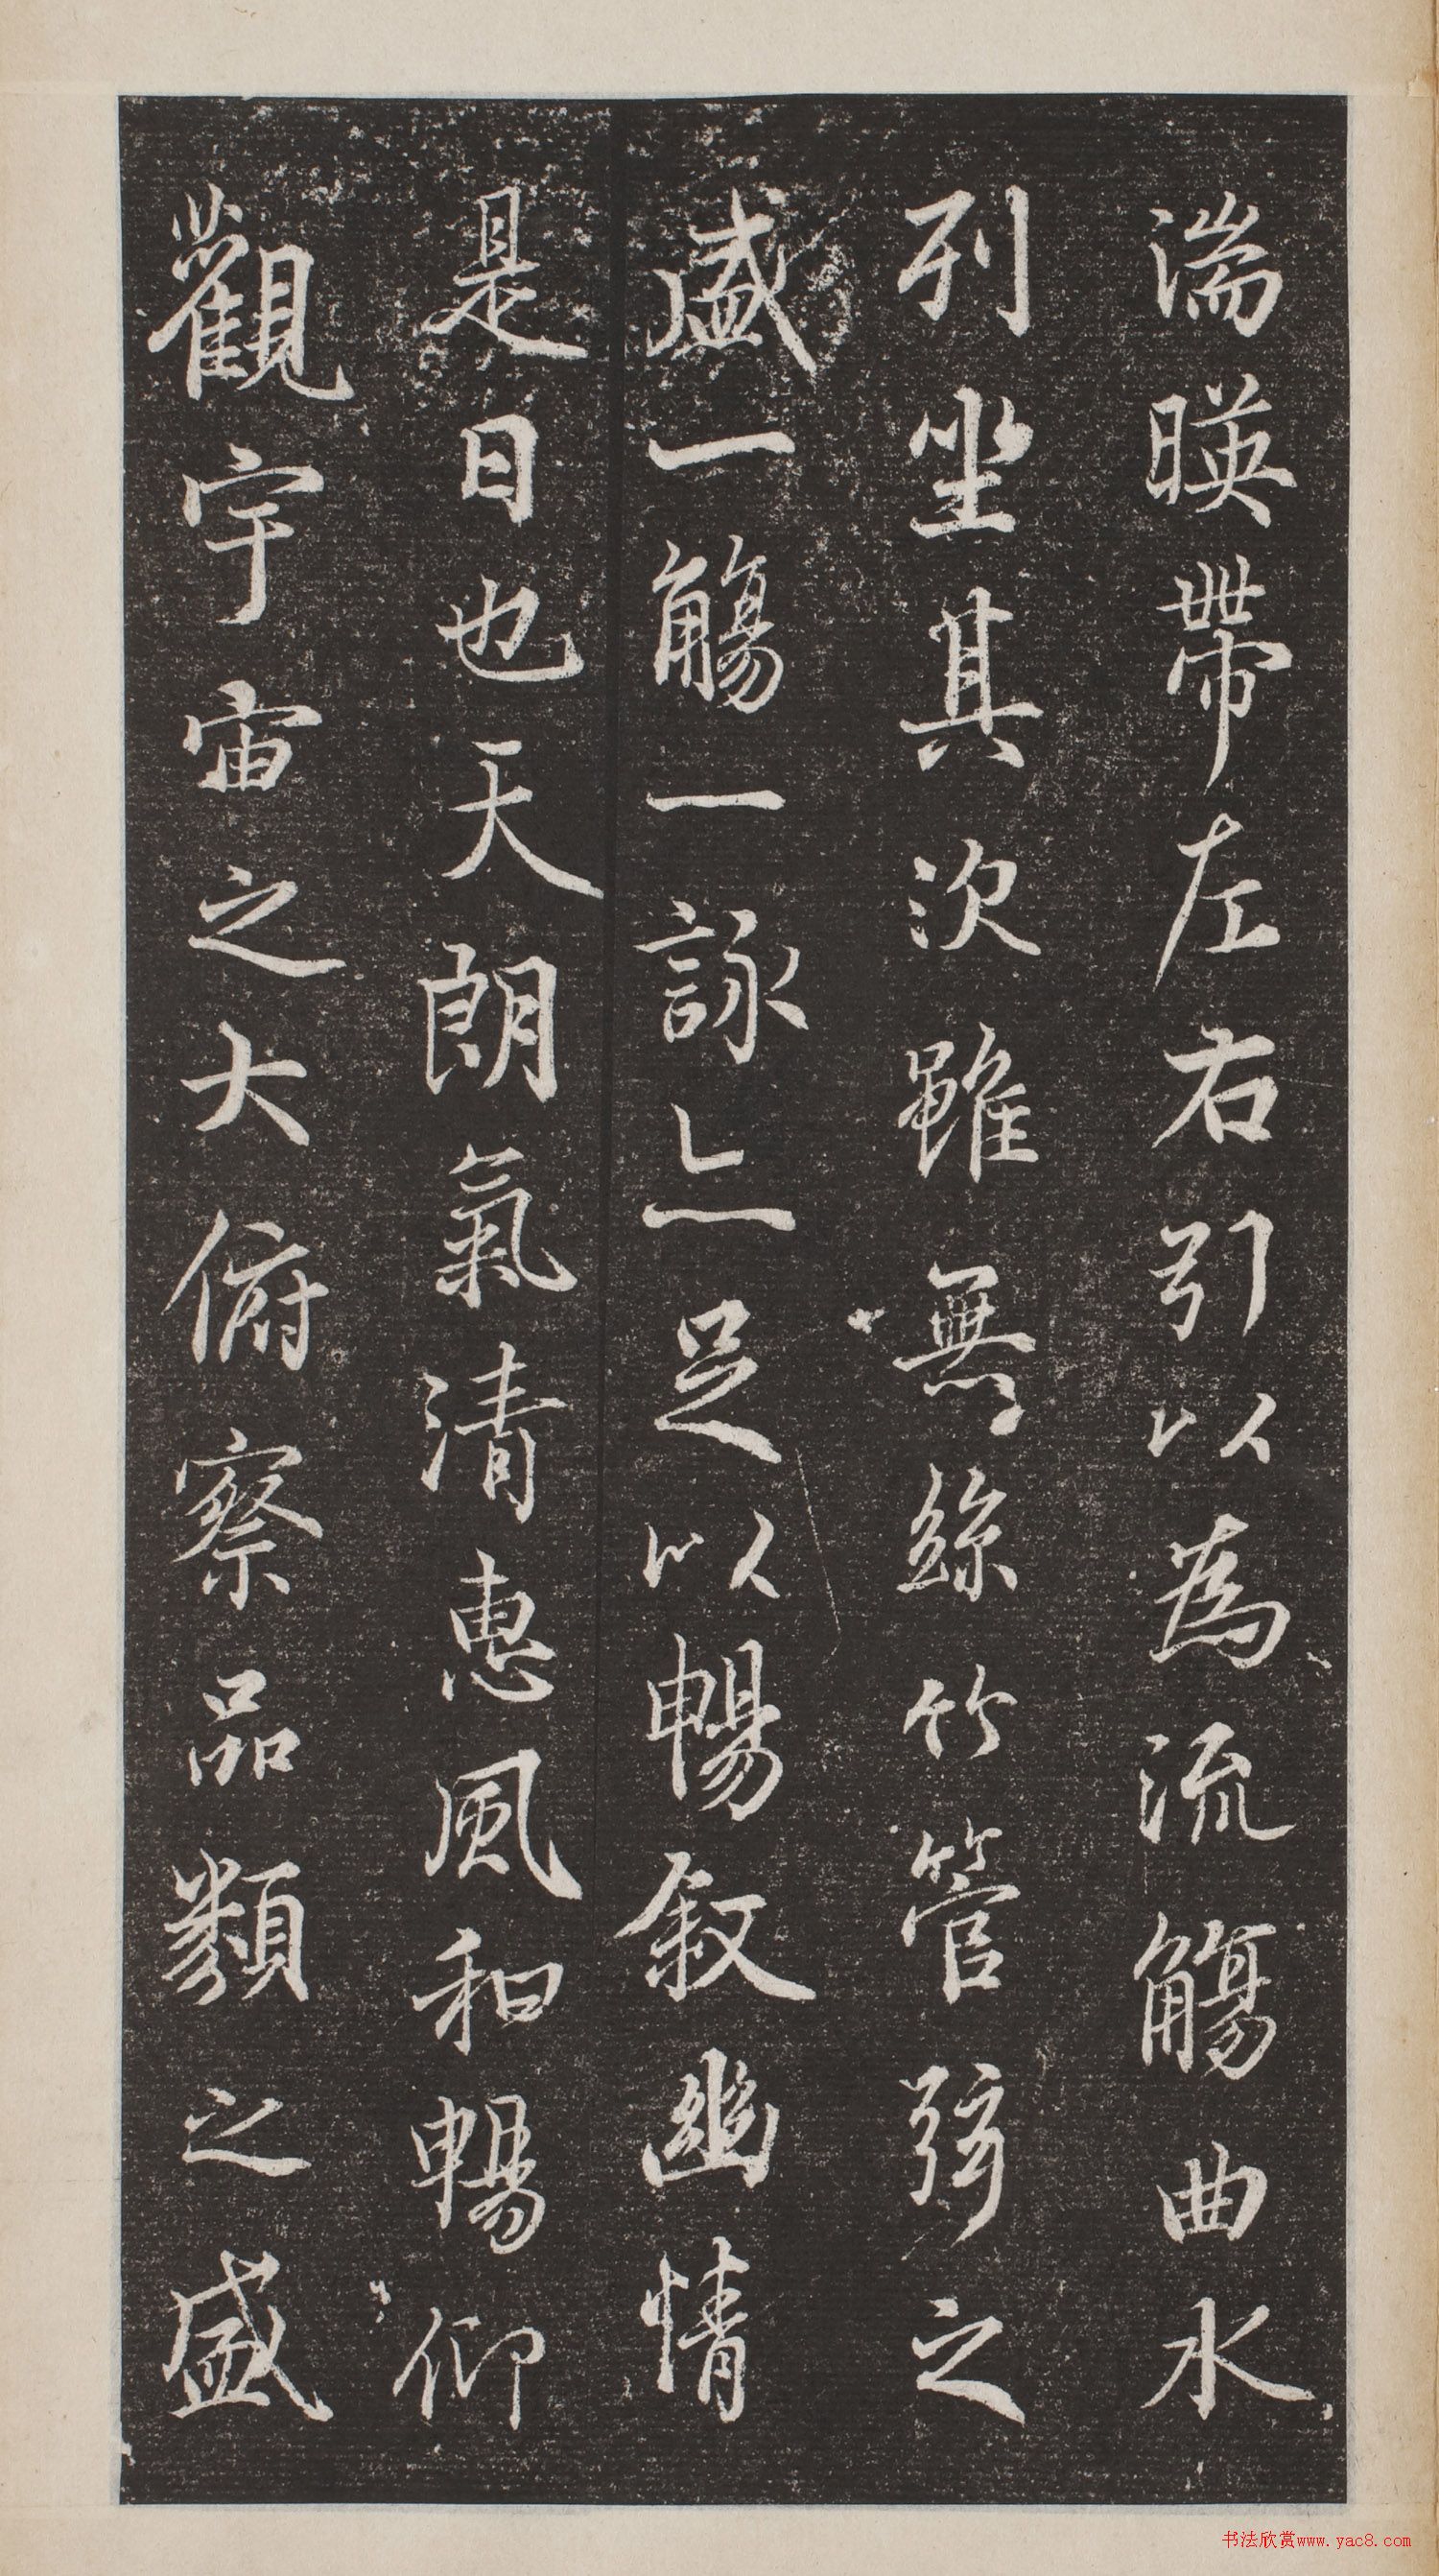 湍暎帶左右引以為流觴曲水
列坐其次雖無絲竹管弦之
盛一觴一詠亦足以暢敘幽情
是日也天朗氣清惠風和暢仰
觀宇宙之大俯察品類之盛
书法欣赏www.yac8.com